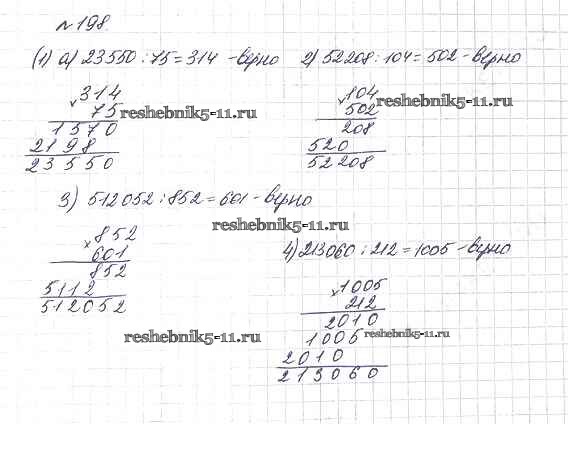 №198.
(1) а) 23550:75=314 -верно
314
× 75
1570
2198
23550
reshebnik5-11.ru
2) 52208:104=502-верно
×104
502
208
520
52208
reshebnik5-11.ru
3) 512052:852=601-верно
reshebnik5-11.ru
×852
601
852
5112
512052
reshebnik5-11.ru
4) 213060:212=1005-верно
×1005
212
2010
1005
2010
213060
reshebnik5-11.ru